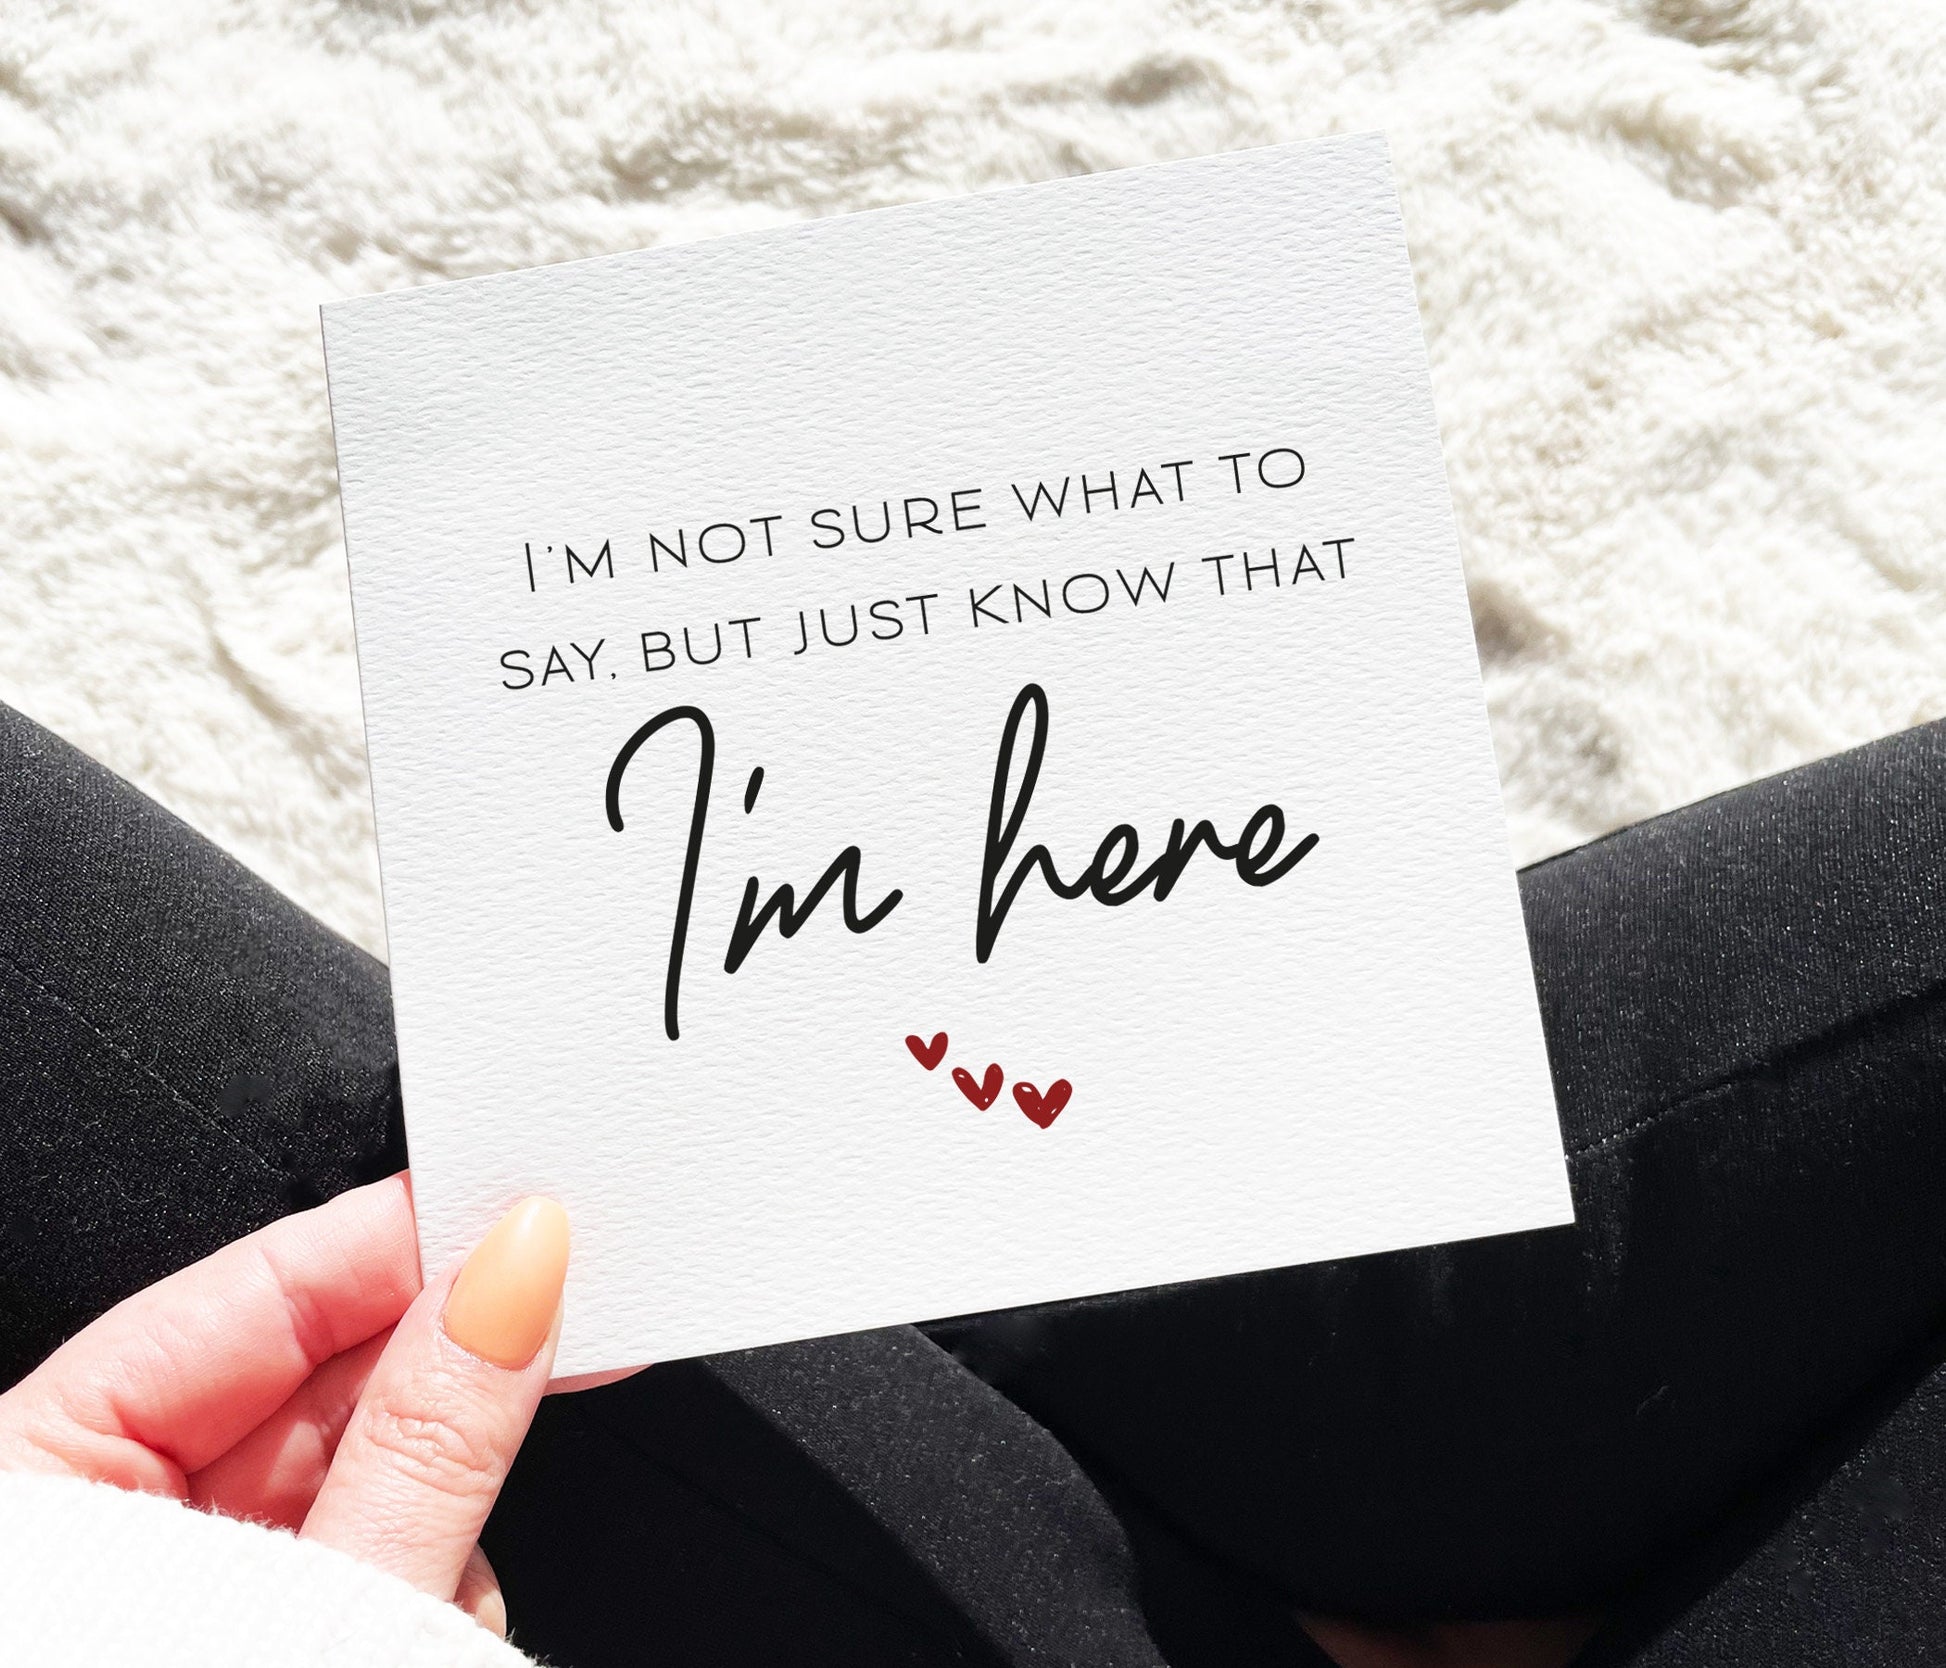 I'M NOT SURE WHAT TO
SAY, BUT JUST KNOW THAT
I'm here